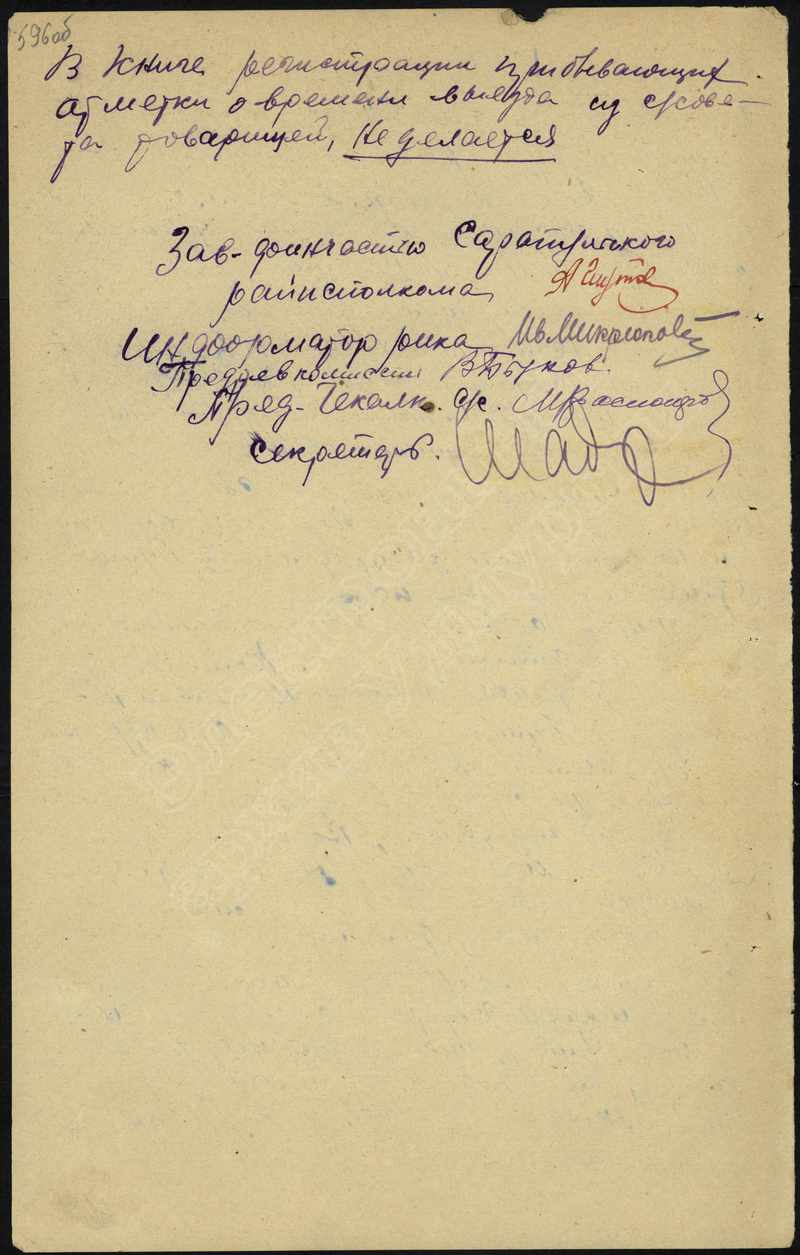 596об
В книге регистрации прибывающих
отметки о времени выезда из сове-
та товарищей, не делается
Зав. финчастью Сарапульского
райисполкома
Информатор рика Ив. Микрюков
Пред. рев комиссии В Бруков.
Пред. Чекалк. с/с.
Секретарь. Шадр